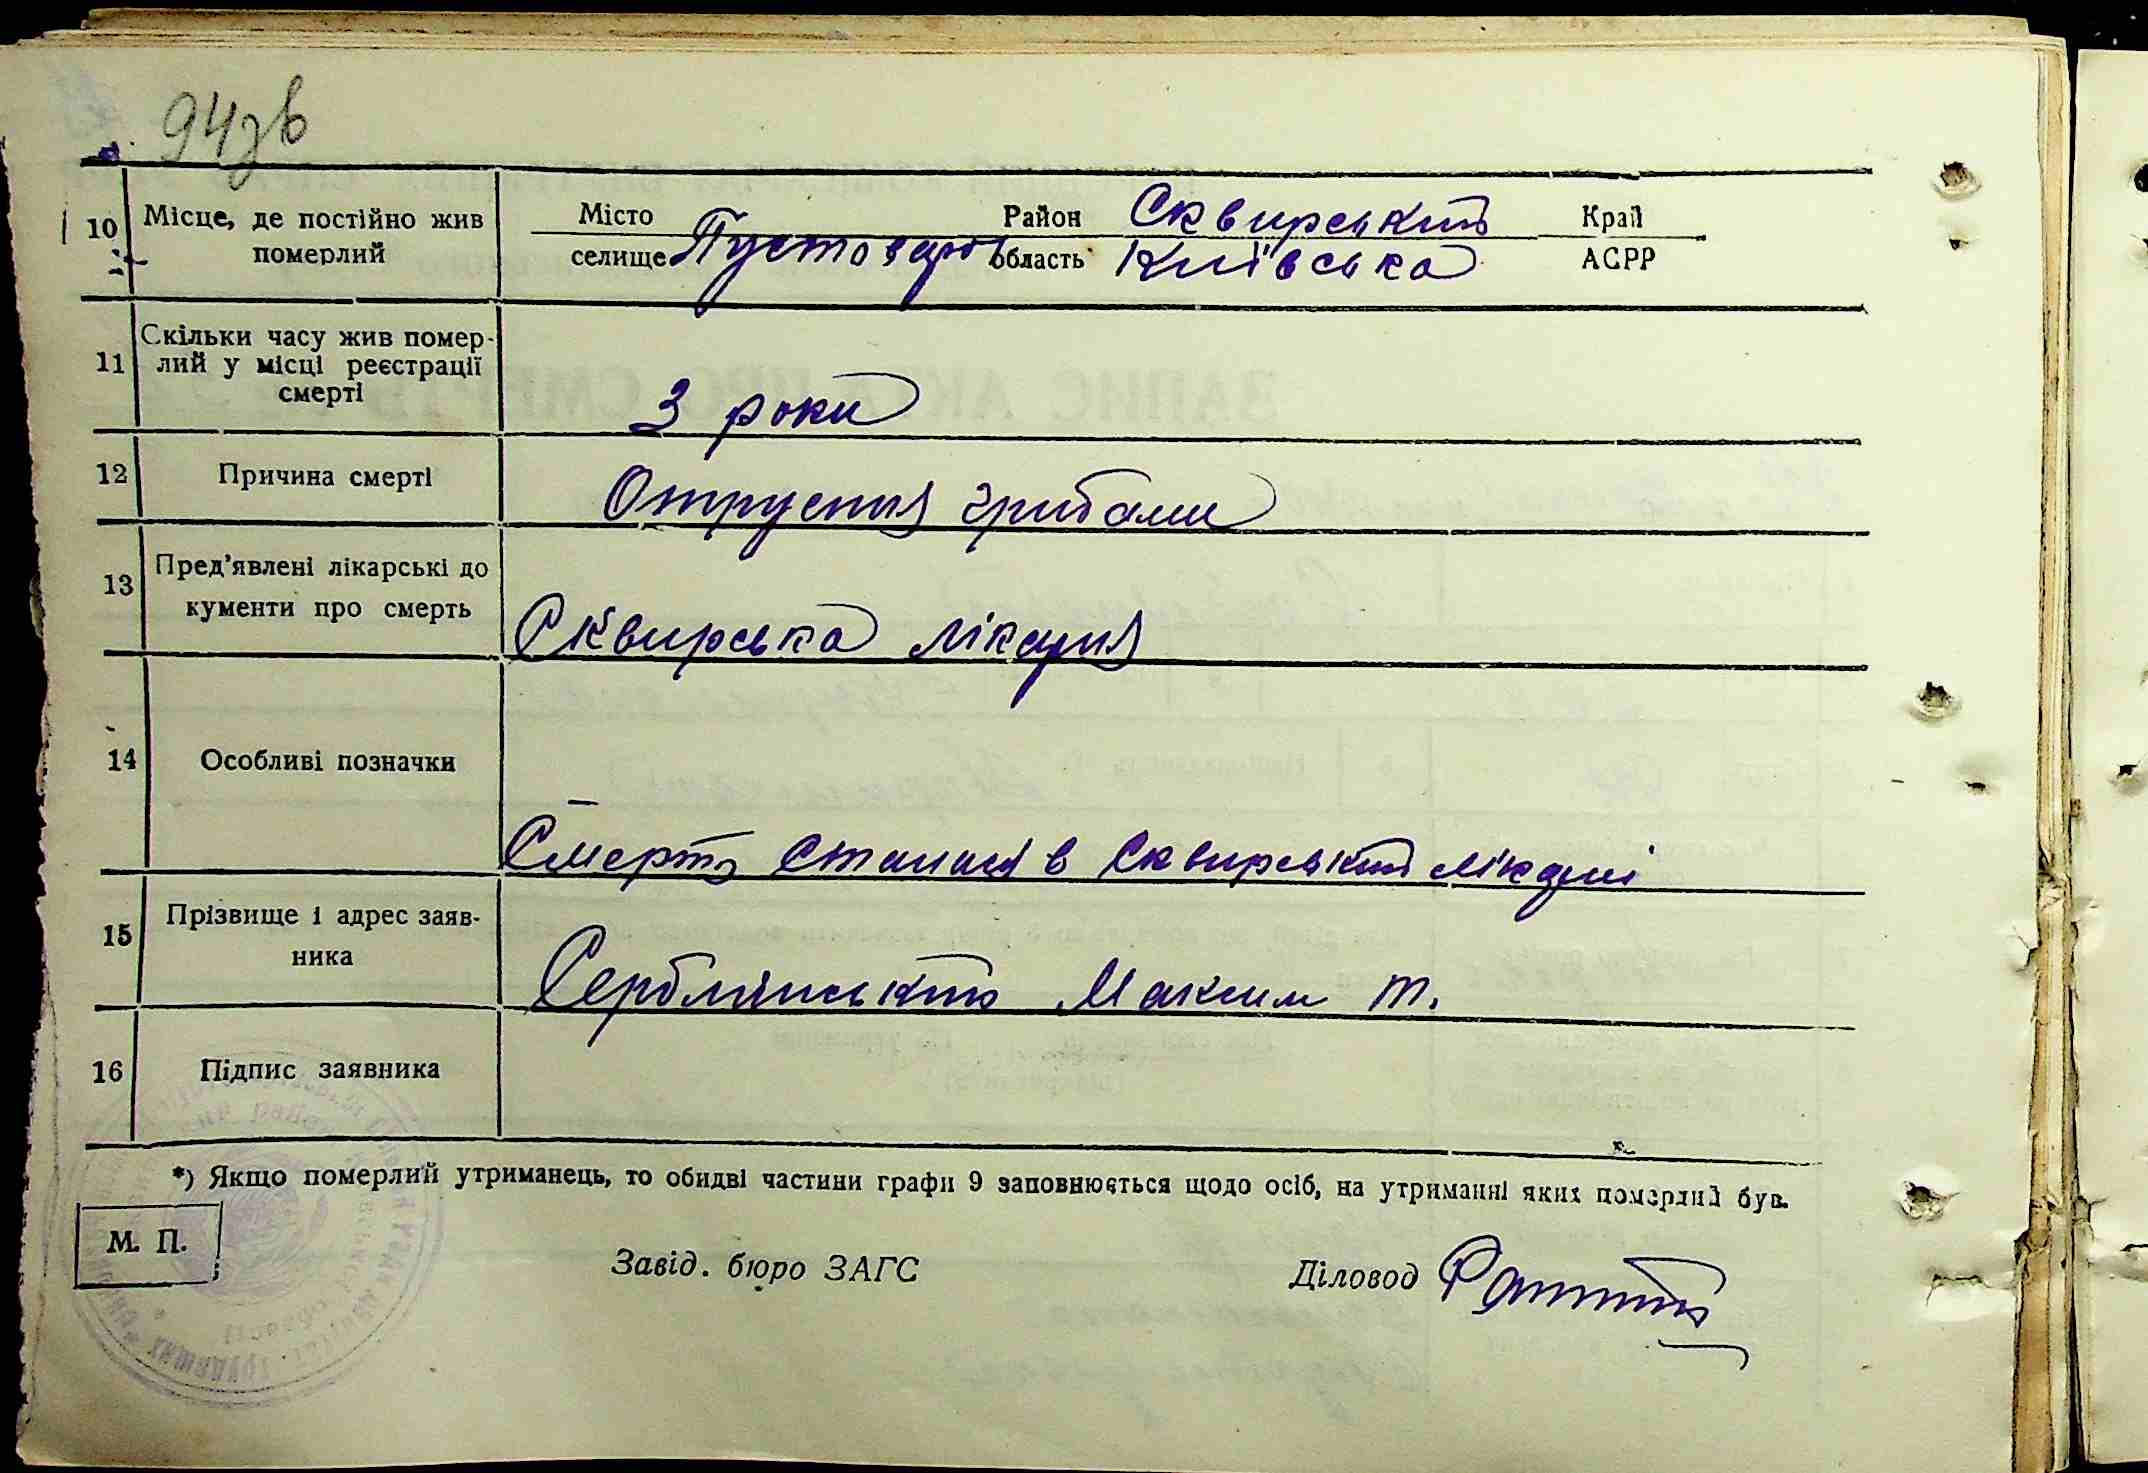 94зв
10 Місце, де постійно жив померлий Місто селище Пустовар Район Сквирський область Київська Край АСРР
11 Скільки часу жив помер-
лий у місці реєстрації
смерті 3 роки
12 Причина смерті Отруєння грибами
13 Пред'явлені лікарські до
кументи про смерть Сквирська лікарня
14 Особливі позначки
Смерть сталася в Сквирській лікарні
15 Прізвище і адрес заяв-
ника Серблянський Максим Т.
16 Підпис заявника
*) Якщо померлий утриманець, то обидві частини графи 9 заповнюється щодо осіб, на утриманні яких померлий був.
М. П.
Завід. бюро ЗАГС Діловод